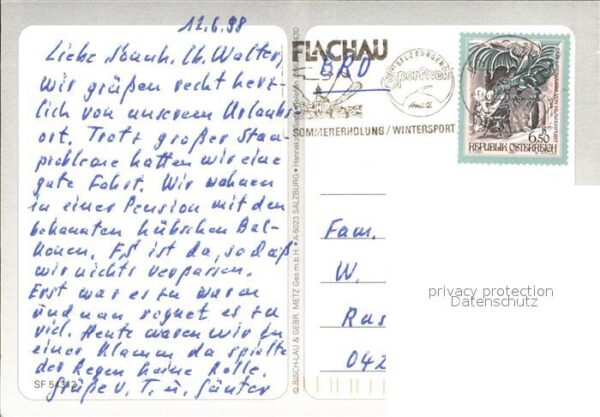 12.6.98
Liebe Hannh. Ch. Walter,
wir grüßen recht herz-
lich von unserem Urlaubs-
ort. Trotz großer Stau-
probleme hatten wir eine
gute Fahrt. Wir wohnen
in einer Pension mit den
bekannten hübschen Bal-
konen. FS ist da, so daß
wir nichts verpassen.
Erst war es zu warm
und nun regnet es zu
viel. Heute waren wir in
einer Klamm da spielte
der Regen keine Rolle.
Grüße v. T. u. Günter
SF 54312
© RISCH-LAU & GEBR. METZ Ges.m.b.H. • A-5023 SALZBURG •
FLACHAU
BRD
SALZBURGER
Sportwelt
Amadé
SOMMERERHOLUNG / WINTERSPORT
6.50
REPUBLIK ÖSTERREICH
Fam.
W.
Ras
042
privacy protection
Datenschutz